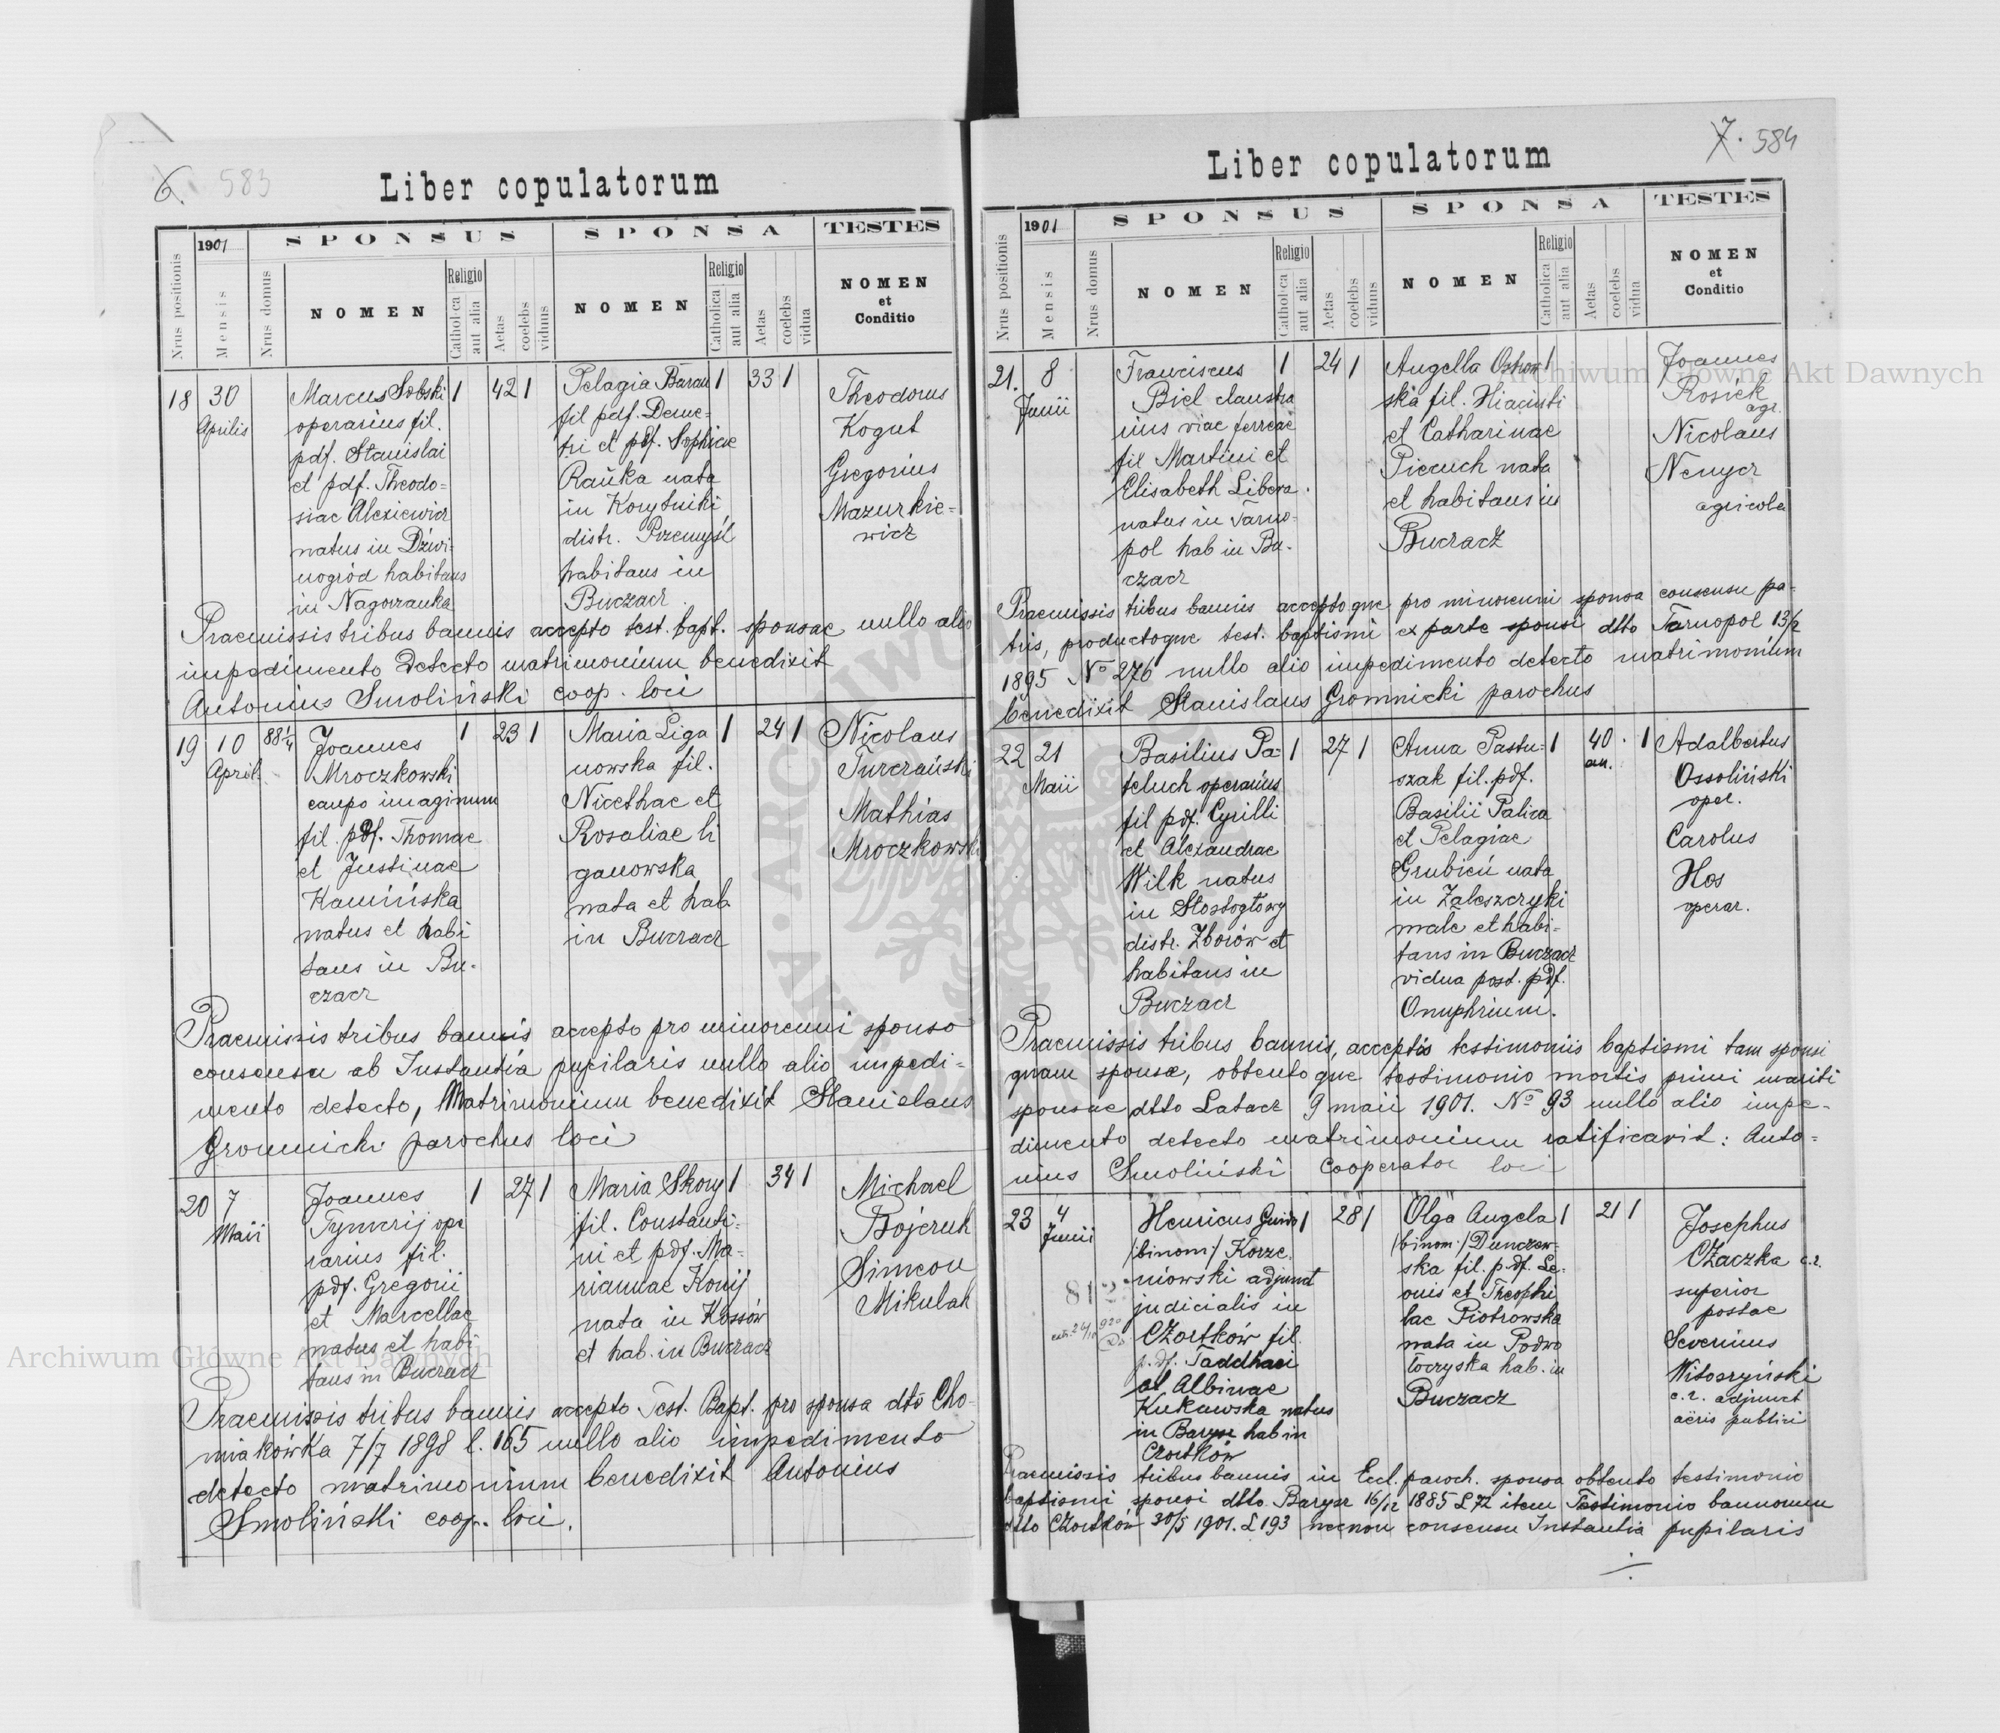 6. 583
Liber copulatorum
1901
SPONSUS
SPONSA
TESTES
Nrus positionis
Mensis
Nrus domus
NOMEN
Religio
Catholica
aut alia
Aetas
coelebs
viduus
NOMEN
Religio
Catholica
aut alia
Aetas
coelebs
vidua
NOMEN
et
Conditio
18
30
Aprilis
Marcus Sobski
operarius fil.
pdf. Stanislai
et pdf. Theodo=
siae Alexiewicz
natus in Dźwi-
nogród habitans
in Nagorzanka
1
42
1
Pelagia Baran
fil pdf. Deme-
tri et pdf. Sophiae
Rańka nata
in Korytniki
distr. Przemyśl
habitans in
Buczacz
1
33
1
Theodorus
Kogut
Gregorius
Mazurkie-
wicz
Praemissis tribus bannis accepto test. bapt. sponsae nullo alio
impedimento detecto matrimonium benedixit
Antonius Smoliński coop. loci
19
10
April.
88 1/4
Joannes
Mroczkowski
caupo imaginum
fil. pdf. Thomae
et Justinae
Kamińska
natus et habi
tans in Bu-
czacz
1
23
1
Maria Liga
nowska fil.
Nicethae et
Rosaliae li
ganowska
nata et hab
in Buczacz
1
24
1
Nicolaus
Turczański
Mathias
Mroczkowski
Praemissis tribus bannis accepto pro minorenni sponso
consensu ab Instantia pupilaris nullo alio impedi-
mento detecto, Matrimonium benedixit Stanislaus
Gromnicki parochus loci
20
7
Maii
Joannes
Tymczij ope
rarius fil.
pdf. Gregorii
et Marcellae
natus et habi
tans in Buczacz
1
27
1
Maria Skory
fil. Constanti-
ni et pdf. Ma-
riannae Konij
nata in Kossów
et hab. in Buczacz
1
34
1
Michael
Bojczuk
Simeon
Mikulak
Praemissis tribus bannis accepto Test. Bapt. pro sponsa dto Cho-
miakówka 7/7 1898 l. 165 nullo alio impedimento
detecto matrimonium benedixit Antonius
Smoliński coop. loci.
7. 584
Liber copulatorum
1901
SPONSUS
SPONSA
TESTES
Nrus positionis
Mensis
Nrus domus
NOMEN
Religio
Catholica
aut alia
Aetas
coelebs
viduus
NOMEN
Religio
Catholica
aut alia
Aetas
coelebs
vidua
NOMEN
et
Conditio
21.
8
Junii
Franciscus
Biel claustra
rius viae ferreae
fil Martini et
Elisabeth Libera.
natus in Tarno-
pol hab in Bu-
czacz
1
24
1
Angella Ostrow
ska fil. Hiacinti
et Catharinae
Piecuch nata
et habitans in
Buczacz
1
Joannes
Rosiek
agr.
Nicolaus
Nemycz
agricola
Praemissis tribus bannis acceptoque pro minorenni sponsa consensu pa-
tris, productoque test. baptismi ex parte sponsi dtto Tarnopol 13/2
1895 No 276 nullo alio impedimento detecto matrimonium
benedixit Stanislaus Gromnicki parochus
22
21
Maii
Basilius Pa-
teluch operarius
fil pdf. Cyrilli
et Alexandrae
Wilk natus
in Stostogłowy
distr. Zborów et
habitans in
Buczacz
1
27
1
Anna Pastu-
szak fil. pdf.
Basilii Palica
et Pelagiae
Grubień nata
in Zaleszczyki
małe et habi-
tans in Buczacz
vidua post. pdf.
Onuphrium.
1
40
an.
1
Adalbertus
Ossoliński
oper.
Carolus
Hos
operar.
Praemissis tribus bannis, acceptis testimoniis baptismi tam sponsi
quam sponsae, obtento que testimonio mortis primi mariti
sponsae dtto Latacz 9 maii 1901. No 93 nullo alio impe-
dimento detecto matrimonium ratificavit: Anto-
nius Smoliński Cooperator loci
23
4
Junii
812
Henricus Guido
/binom/ Korze
niowski adjunct
judicialis in
Czortków fil.
p.df. Taddhaei
et Albinae
Kukawska natus
in Barysz hab in
Czortków
1
28
1
Olga Angela
/binom/ Dunczew-
ska fil. p.df. Le-
onis et Theophi
lae Piotrowska
nata in Podwo
łoczyska hab. in
Buczacz
1
21
1
Josephus
Ożaczka c.r.
superior
postae
Severinus
Witoszyński
c.r. adjunct
aëris publici
Praemissis tribus bannis in Eccl. paroch. sponsa obtento testimonio
baptismi sponsi dtto Barysz 16/12 1885 L 72 item Testimonio bannorum
dtto Czortków 30/5 1901. L 193 necnon consensu Instantia pupilaris
./.
Archiwum Główne Akt Dawnych
Archiwum Główne Akt Dawnych